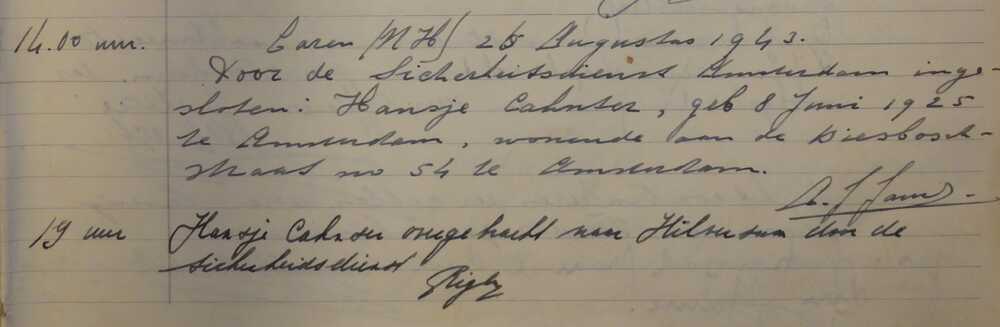 14.00 uur. Laren (NH) 26 Augustus 1943.
Door de Sicherheitsdienst Amsterdam inge-
sloten: Hansje Cahnter, geb 8 Juni 1925
te Amsterdam, wonende aan de Biesbosch-
straat no 54 te Amsterdam.
19 uur Hansje Cahnter overgebracht naar Hilversum door de
Sicherheidsdienst